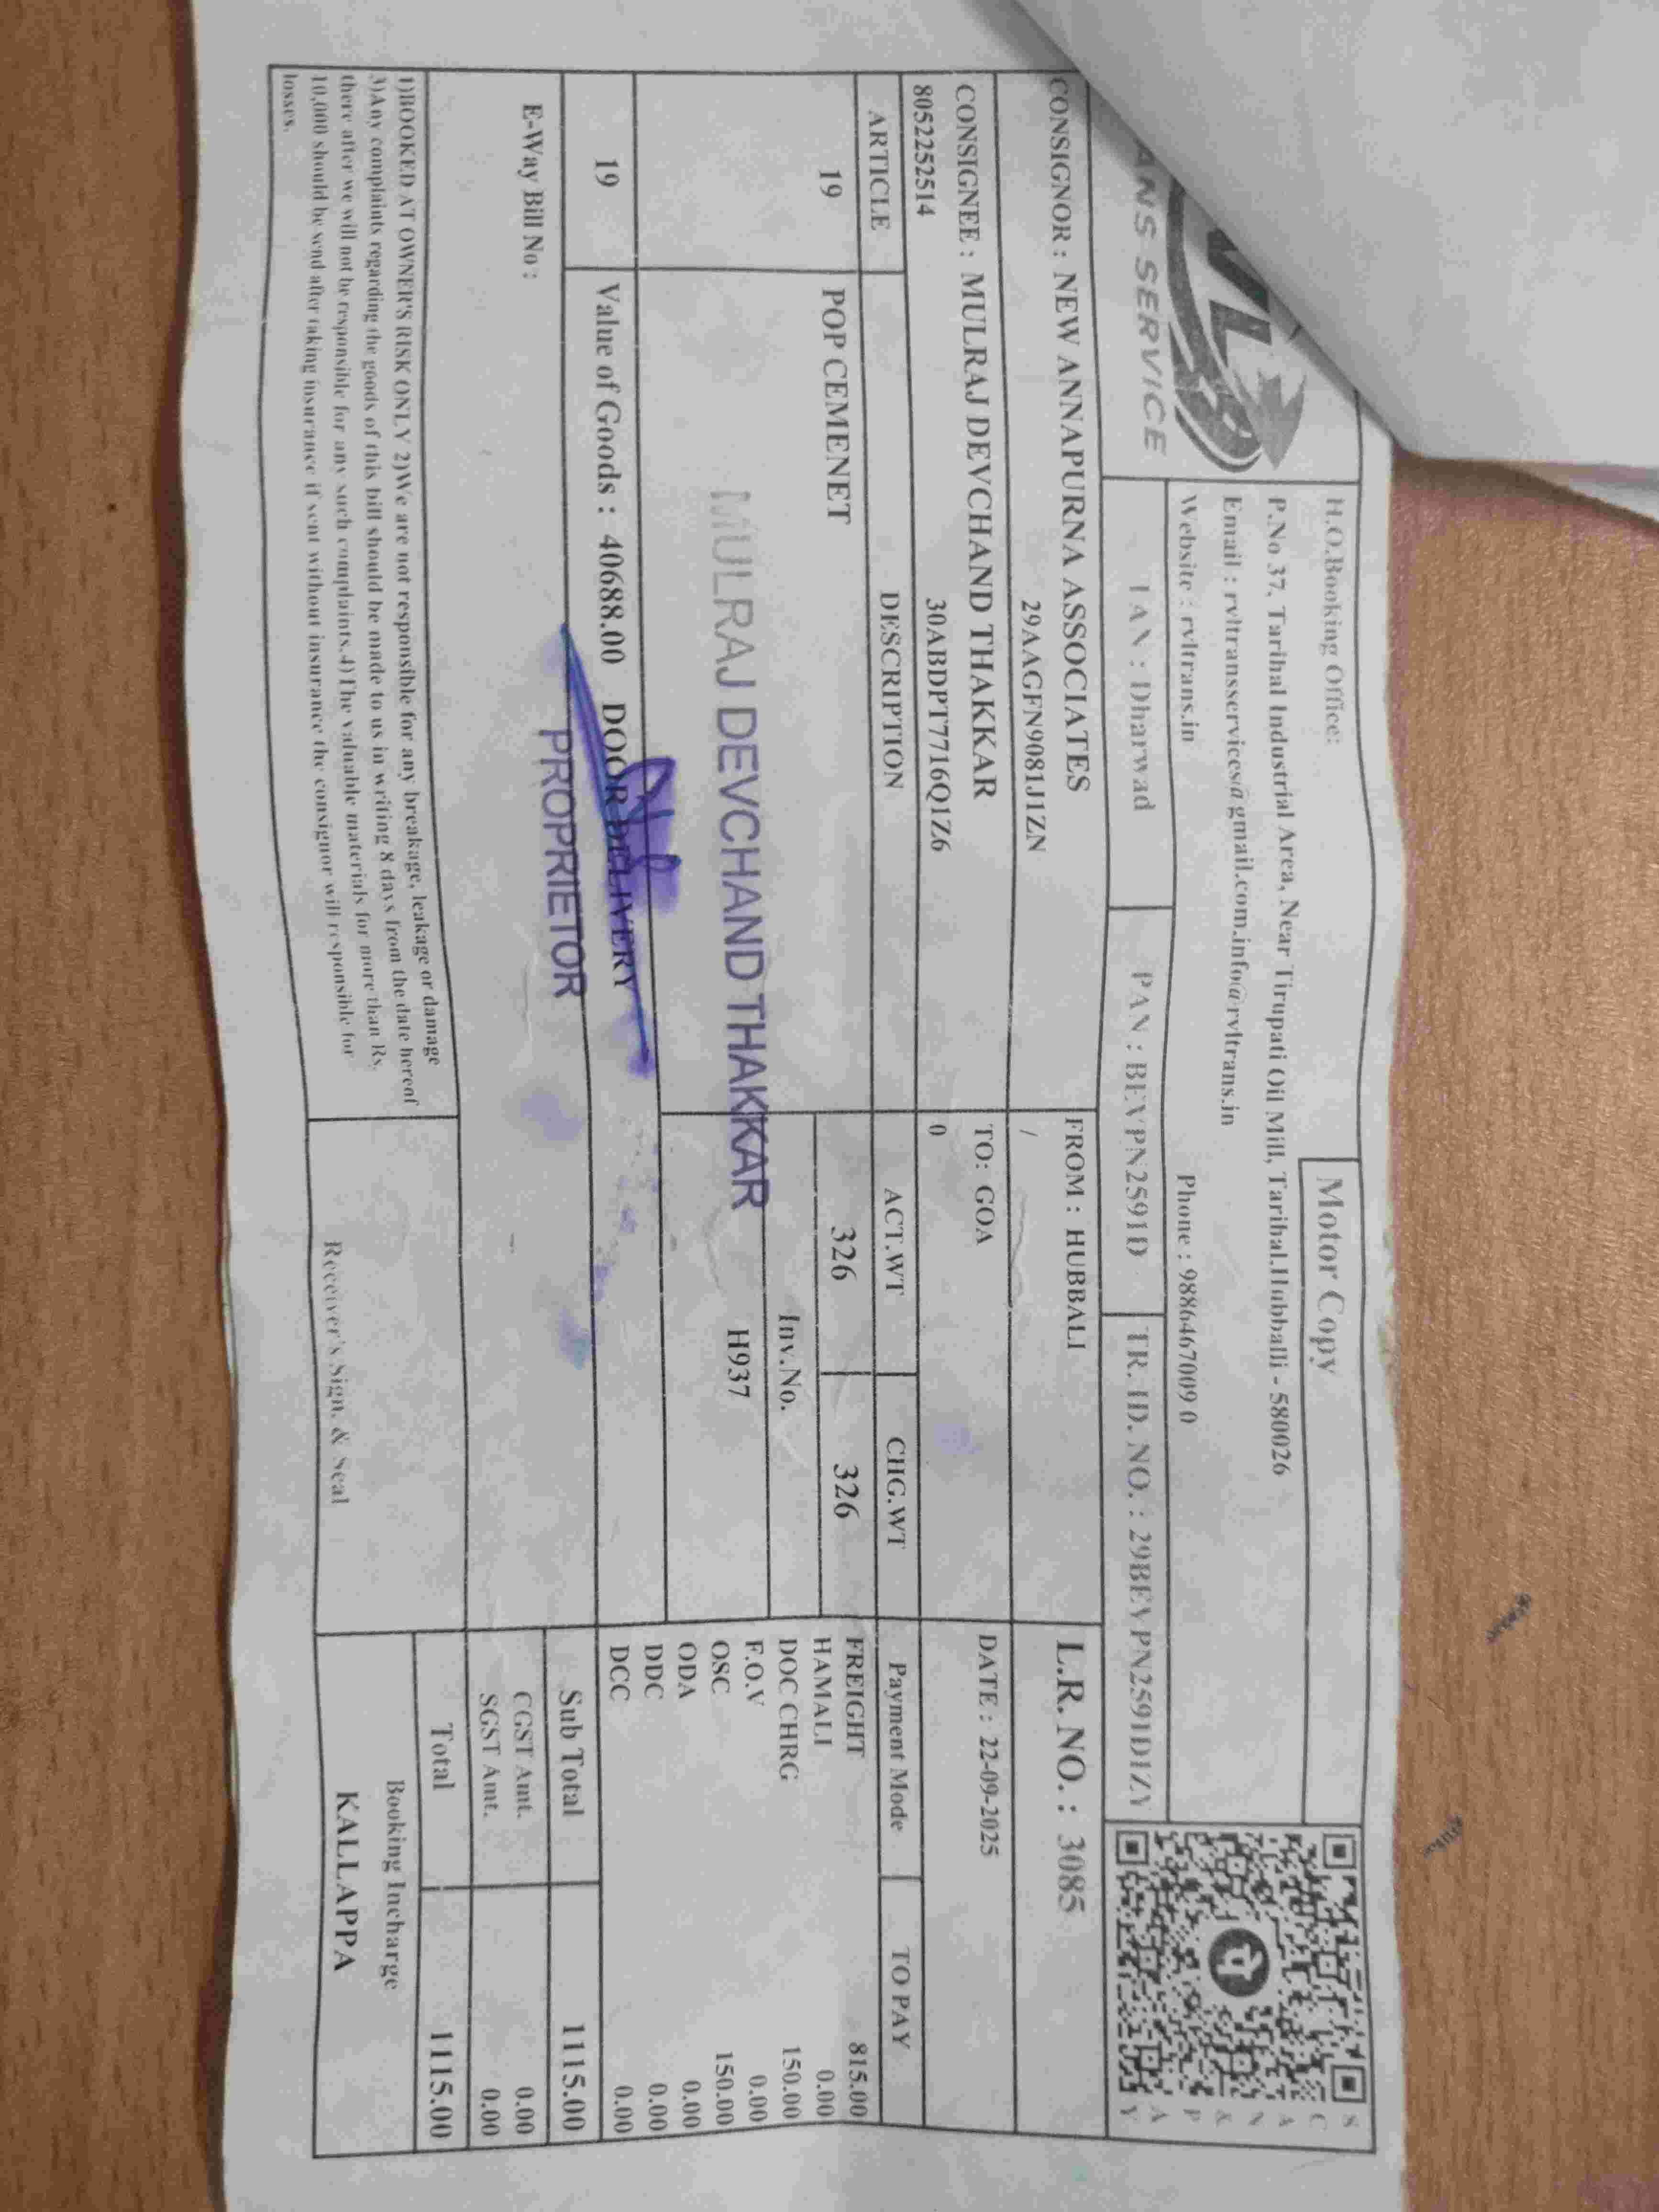 Motor Copy
H.O.Booking Office:
P.No 37, Tarihal Industrial Area, Near Tirupati Oil Mill, Tarihal,Hubballi - 580026
Email : rvltransservices@gmail.com.info@rvltrans.in
Website : rvltrans.in Phone : 9886467009 0
VL
ANS SERVICE
SCAN & PAY
TAN : Dharwad PAN : BEVPN2591D TR. ID. NO. : 29BEVPN2591D1ZY
CONSIGNOR : NEW ANNAPURNA ASSOCIATES FROM : HUBBALI L.R. NO. : 3085
29AAGFN9081J1ZN /
CONSIGNEE : MULRAJ DEVCHAND THAKKAR TO: GOA DATE : 22-09-2025
805225251​4 30ABDPT7716Q1Z6 0
ARTICLE DESCRIPTION ACT.WT CHG.WT Payment Mode TO PAY
19 POP CEMENET 326 326 FREIGHT 815.00
HAMALI 0.00
Inv.No. DOC CHRG 150.00
F.O.V 0.00
MULRAJ DEVCHAND THAKKAR H937 OSC 150.00
ODA 0.00
DDC 0.00
19 Value of Goods : 40688.00 DOOR DELIVERY DCC 0.00
PROPRIETOR
Sub Total 1115.00
E-Way Bill No : CGST Amt. 0.00
SGST Amt. 0.00
Total 1115.00
1)BOOKED AT OWNER'S RISK ONLY 2)We are not responsible for any breakage, leakage or damage
3)Any complaints regarding the goods of this bill should be made to us in writing 8 days from the date hereof
there after we will not be responsible for any such complaints.4)The valuable materials for more than Rs.
10,000 should be send after taking insurance if sent without insurance the consignor will responsible for
losses.
Receiver's Sign. & Seal
Booking Incharge
KALLAPPA